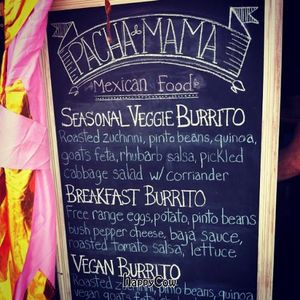 PACHA MAMA
Mexican Food
SEASONAL VEGGIE BURRITO
Roasted zuchinni, pinto beans, quinoa,
goats feta, rhubarb salsa, pickled
cabbage salad w/ corriander
BREAKFAST BURRITO
Free range eggs, potato, pinto beans
bush pepper cheese, baja sauce,
roasted tomato salsa, lettuce
VEGAN BURRITO
Roasted zuchinni, pinto beans, quinoa,
vegan goats feta,
HappyCow